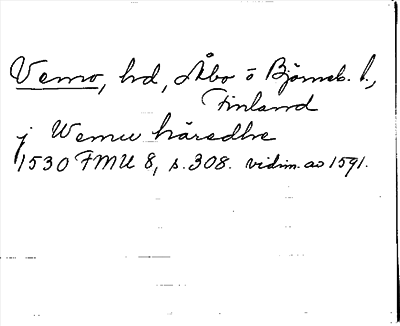 Vemo, hd, Åbo o Björneb. l.,
Finland
j Wemu häredhe
1530 FMU 8, s. 308. vidim. av 1591.